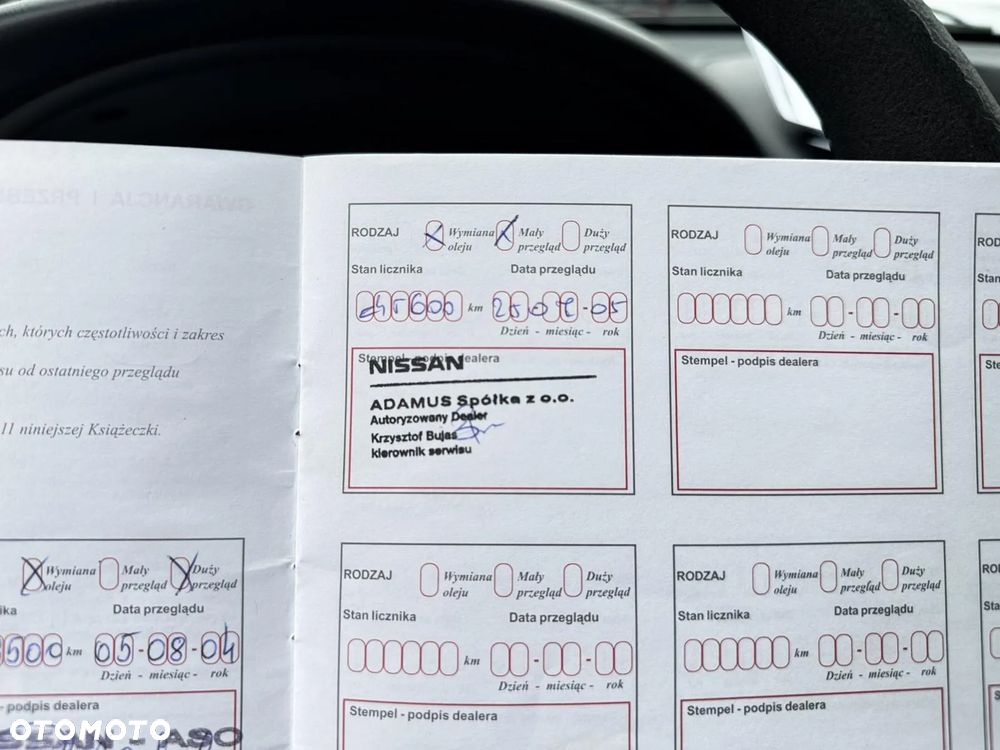 ch, których częstotliwości i zakres
su od ostatniego przeglądu
11 niniejszej Książeczki.
Wymiana oleju Mały przegląd Duży przegląd
Data przeglądu
500 km 05-08-04
Dzień - miesiąc - rok
- podpis dealera
ASO
RODZAJ Wymiana oleju Mały przegląd Duży przegląd
Stan licznika Data przeglądu
45600 km 25 05
Dzień - miesiąc - rok
Stempel - podpis dealera
NISSAN
ADAMUS Spółka z o.o.
Autoryzowany Dealer
Krzysztof Bujas
kierownik serwisu
RODZAJ Wymiana oleju Mały przegląd Duży przegląd
Stan licznika Data przeglądu
km
Dzień - miesiąc - rok
Stempel - podpis dealera
RODZAJ Wymiana oleju Mały przegląd Duży przegląd
Stan licznika Data przeglądu
km
Dzień - miesiąc - rok
Stempel - podpis dealera
RODZAJ Wymiana oleju Mały przegląd Duży przegląd
Stan licznika Data przeglądu
km
Dzień - miesiąc - rok
Stempel - podpis dealera
OTOMOTO